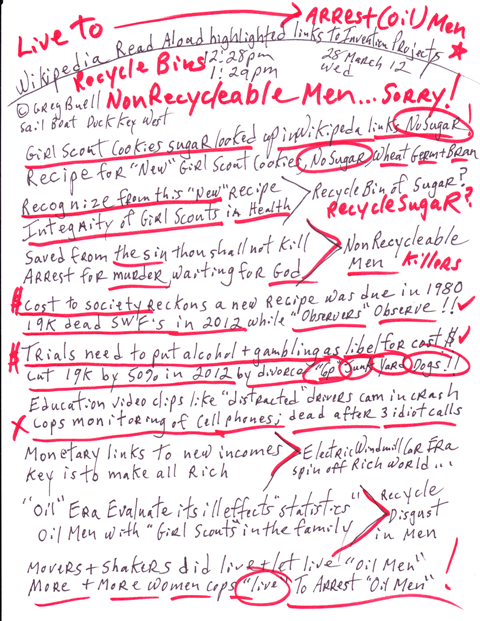 Live to → ARREST (Oil) Men
Wikipedia Read Aloud highlighted links to Invention Projects
Recycle Bins 12:28pm 28 March 12
1:29pm Wed
© Greg Buell NonRecycleable Men... Sorry!
Sail Boat Duck Key West
Girl Scout Cookies sugar looked up in Wikipeda links No Sugar
Recipe for "New" Girl Scout Cookies, No Sugar, Wheat Germ + Bran
Recognize from this "New" Recipe
Recycle Bin of Sugar?
Integrity of Girl Scouts in Health
Recycle Sugar?
Saved from the sin thou shall not kill
NonRecycleable
Arrest for murder waiting for God
Men Killers
$ Cost to society reckons a new Recipe was due in 1980
19K dead SWF's in 2012 while "Observers" Observe !! ✓
$ Trials need to put alcohol + gambling as libel for cost $ ✓
cut 19K by 50% in 2012 by divorce "Gp" Junk Yard Dogs!!
Education video clips like "distracted" drivers cam in crash
X Cops monitoring of cell phones; dead after 3 idiot calls
Monetary links to new incomes
Electric Windmill Car Era
Key is to make all Rich
spin off Rich world...
"Oil" Era Evaluate its ill effects "statistics"
Recycle
Oil Men with "Girl Scouts" in the family
Disgust
in Men
Movers + Shakers did live + let live "Oil Men"
More + More women cops "live" To Arrest "Oil Men" !